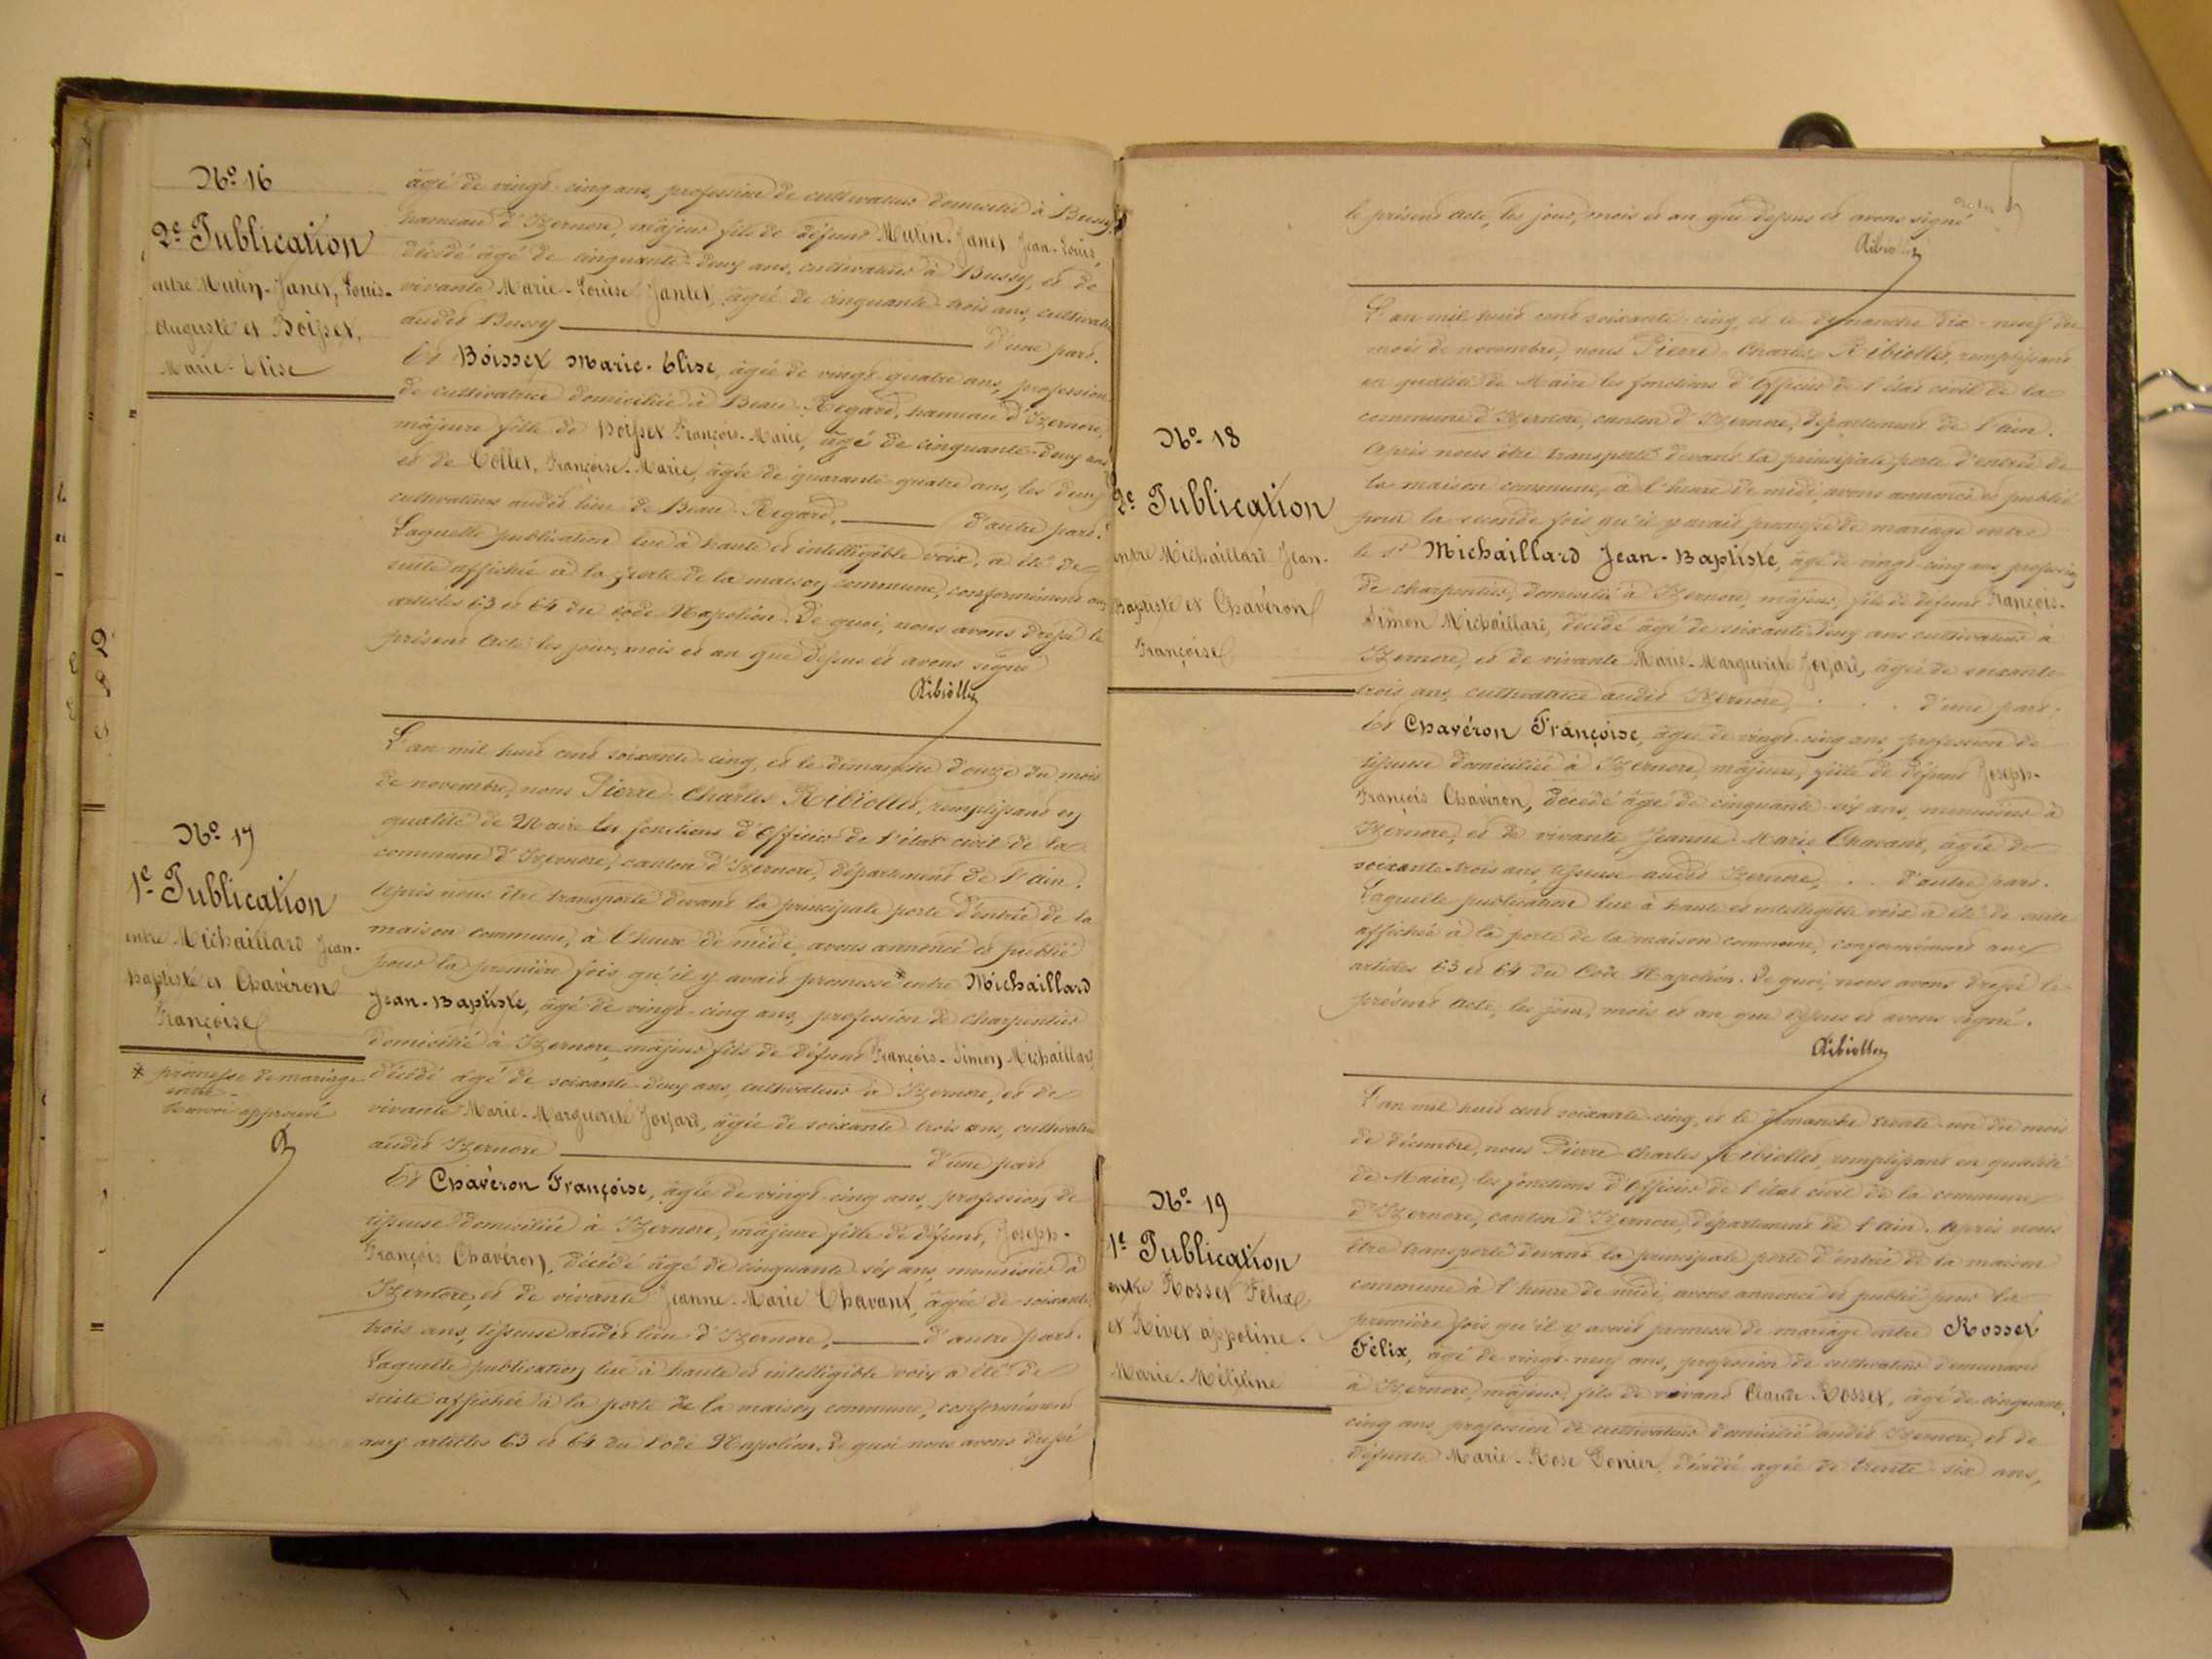 No. 16
2e Publication
entre Mutin-Janet, Louis-
Auguste et Boisset,
Marie-Elise
âgé de vingt-cinq ans, profession de cultivateur domicilié à Bussy,
hameau d'Izernore, majeur fils de défunt Mutin-Janet Jean-Louis,
décédé âgé de cinquante-deux ans, cultivateur à Bussy, et de
vivante Marie-Louise Jantet, âgée de cinquante trois ans, cultivatrice
audit Bussy d'une part.
Et Boisset Marie-Elise, âgée de vingt-quatre ans, profession
de cultivatrice domiciliée à Beau-Regard, hameau d'Izernore,
majeure fille de Boisset François-Marie, âgé de cinquante-deux ans
et de Collet, Françoise-Marie, âgée de quarante quatre ans, les deux
cultivateurs audit lieu de Beau-Regard, d'autre part.
Laquelle publication lue à haute et intelligible voix, a été de
suite affichée à la porte de la maison commune, conformément aux
articles 63 et 64 du code Napoléon. De quoi, nous avons dressé le
présent acte les jour, mois et an que dessus et avons signé
Ribiollet
No. 17
1e Publication
entre Michaillard Jean-
Baptiste et Chavéron
Françoise
* promesse de mariage
entre
renvoi approuvé
R
L'an mil huit cent soixante-cinq, et le dimanche douze du mois
de novembre, nous Pierre-Charles Ribiollet, remplissant en
qualité de Maire les fonctions d'Officier de l'état civil de la
commune d'Izernore, canton d'Izernore, département de l'ain.
Après nous être transporté devant la principale porte d'entrée de la
maison commune, à l'heure de midi, avons annoncé et publié
pour la première fois qu'il y avait promesse * entre Michaillard
Jean-Baptiste, âgé de vingt-cinq ans, profession de charpentier
domicilié à Izernore, majeur fils de défunt François-Simon Michaillard,
décédé âgé de soixante-deux ans, cultivateur à Izernore, et de
vivante Marie-Marguerite Joyard, âgée de soixante trois ans, cultivatrice
audit Izernore d'une part
Et Chavéron Françoise, âgée de vingt-cinq ans, profession de
tisseuse domiciliée à Izernore, majeure fille de défunt, Joseph-
François Chavéron, décédé âgé de cinquante six ans, menuisier à
Izernore, et de vivante Jeanne-Marie Chavant, âgée de soixante
trois ans, tisseuse audit lieu d'Izernore, d'autre part.
Laquelle publication lue à haute et intelligible voix a été de
suite affichée à la porte de la maison commune, conformément
aux articles 63 et 64 du Code Napoléon. De quoi nous avons dressé
le présent acte, les jour, mois et an que dessus et avons signé
Ribiollet
No. 18
2e Publication
entre Michaillard Jean-
Baptiste et Chavéron
Françoise
L'an mil huit cent soixante-cinq, et le dimanche dix-neuf du
mois de novembre, nous Pierre-Charles Ribiollet, remplissant
en qualité de Maire les fonctions d'Officier de l'état civil de la
commune d'Izernore, canton d'Izernore, département de l'ain.
Après nous être transporté devant la principale porte d'entrée de
la maison commune, à l'heure de midi, avons annoncé et publié
pour la seconde fois qu'il y avait promesse de mariage entre
le sr Michaillard Jean-Baptiste, âgé de vingt-cinq ans, profession
de charpentier, domicilié à Izernore, majeur, fils de défunt François-
Simon Michaillard, décédé âgé de soixante-deux ans cultivateur à
Izernore, et de vivante Marie-Marguerite Joyard, âgée de soixante
trois ans, cultivatrice audit Izernore, . . . d'une part.
Et Chavéron Françoise, âgée de vingt-cinq ans, profession de
tisseuse domiciliée à Izernore, majeure, fille de défunt Joseph-
François Chavéron, décédé âgé de cinquante-six ans, menuisier à
Izernore, et de vivante Jeanne-Marie Chavant, âgée de
soixante-trois ans, tisseuse audit Izernore, . . d'autre part.
Laquelle publication lue à haute et intelligible voix a été de suite
affichée à la porte de la maison commune, conformément aux
articles 63 et 64 du Code Napoléon. De quoi, nous avons dressé le
présent acte, les jour, mois et an que dessus et avons signé.
Ribiollet
No. 19
1e Publication
entre Rosset Félix
et Rivet appoline-
Marie-Mélitine
L'an mil huit cent soixante-cinq, et le dimanche trente-un du mois
de décembre, nous Pierre-Charles Ribiollet, remplissant en qualité
de Maire, les fonctions d'Officier de l'état civil de la commune
d'Izernore, canton d'Izernore, département de l'ain. Après nous
être transporté devant la principale porte d'entrée de la maison
commune à l'heure de midi, avons annoncé et publié pour la
première fois qu'il y avait promesse de mariage entre Rosset
Félix, âgé de vingt-neuf ans, profession de cultivateur demeurant
à Izernore, majeur, fils de vivant Claude Rosset, âgé de cinquante-
cinq ans, profession de cultivateur domicilié audit Izernore, et de
défunte Marie-Rose Donier, décédée âgée de trente-six ans,